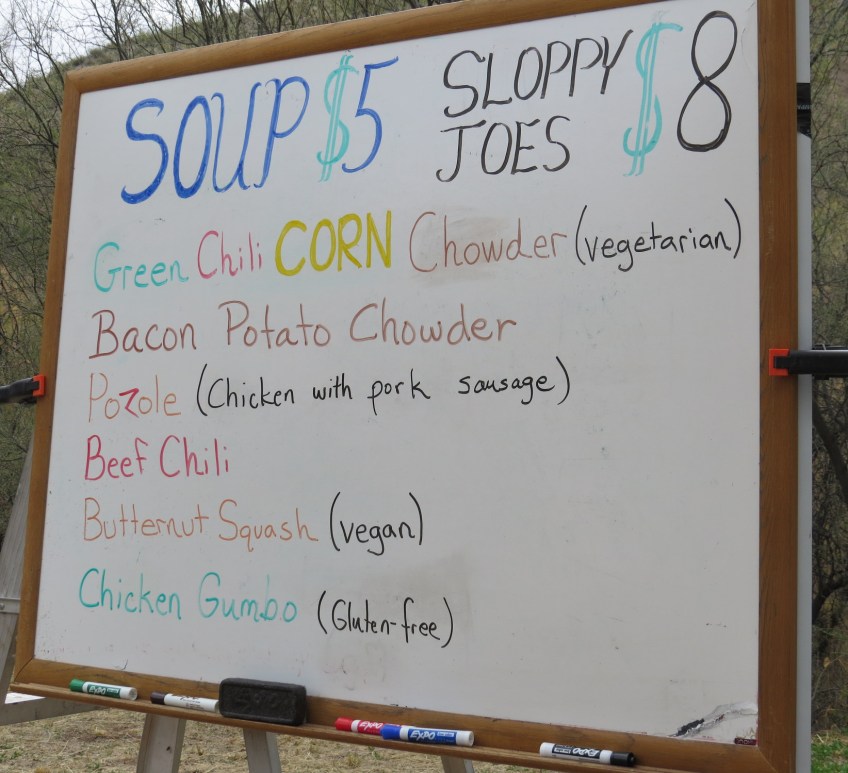 SOUP $5
SLOPPY JOES $8
Green Chili CORN Chowder (vegetarian)
Bacon Potato Chowder
Pozole (Chicken with pork sausage)
Beef Chili
Butternut Squash (vegan)
Chicken Gumbo (Gluten-free)
EXPO
EXPO
EXPO
EXPO